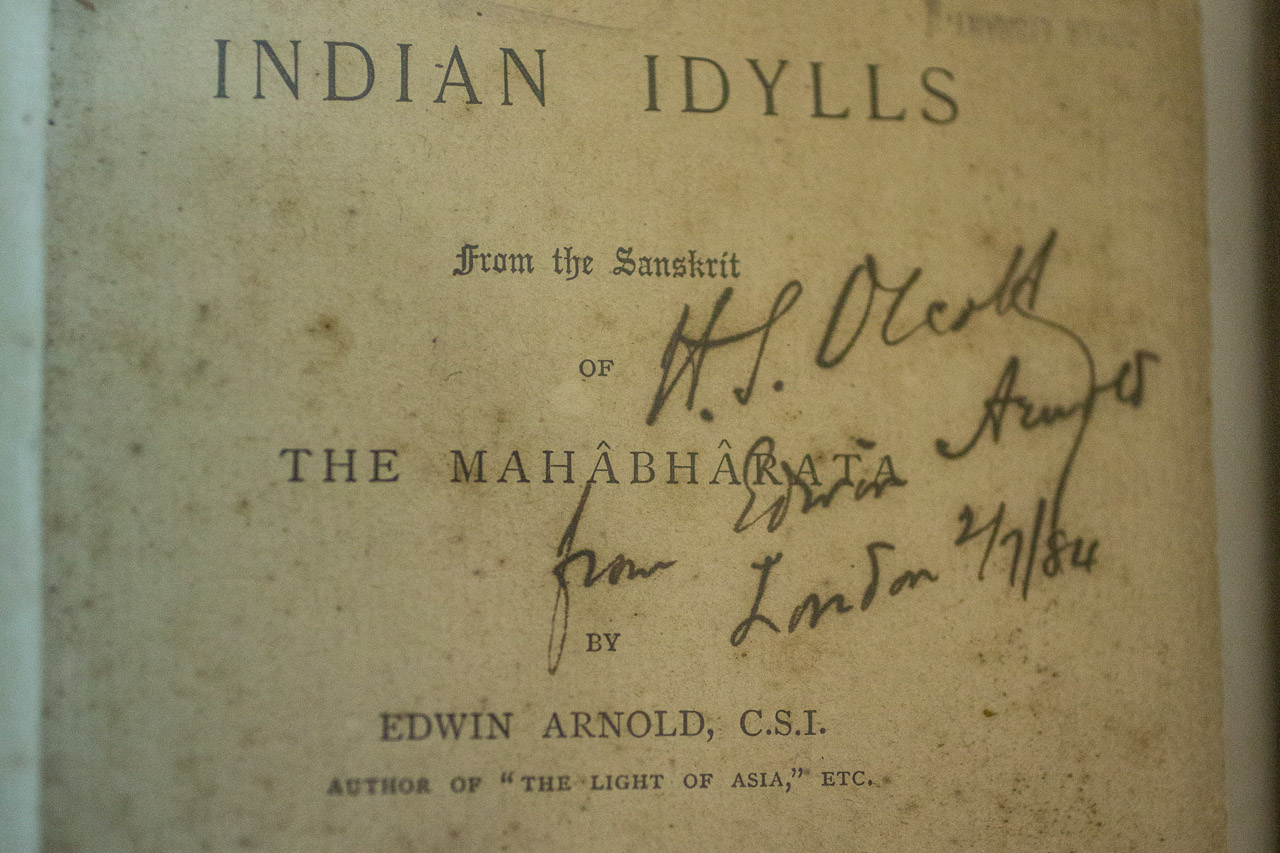 INDIAN IDYLLS
From the Sanskrit
OF
H. S. Olcott
THE MAHÂBHÂRATA
from Edwin Arnold
London 2/7/84
BY
EDWIN ARNOLD, C.S.I.
AUTHOR OF "THE LIGHT OF ASIA," ETC.